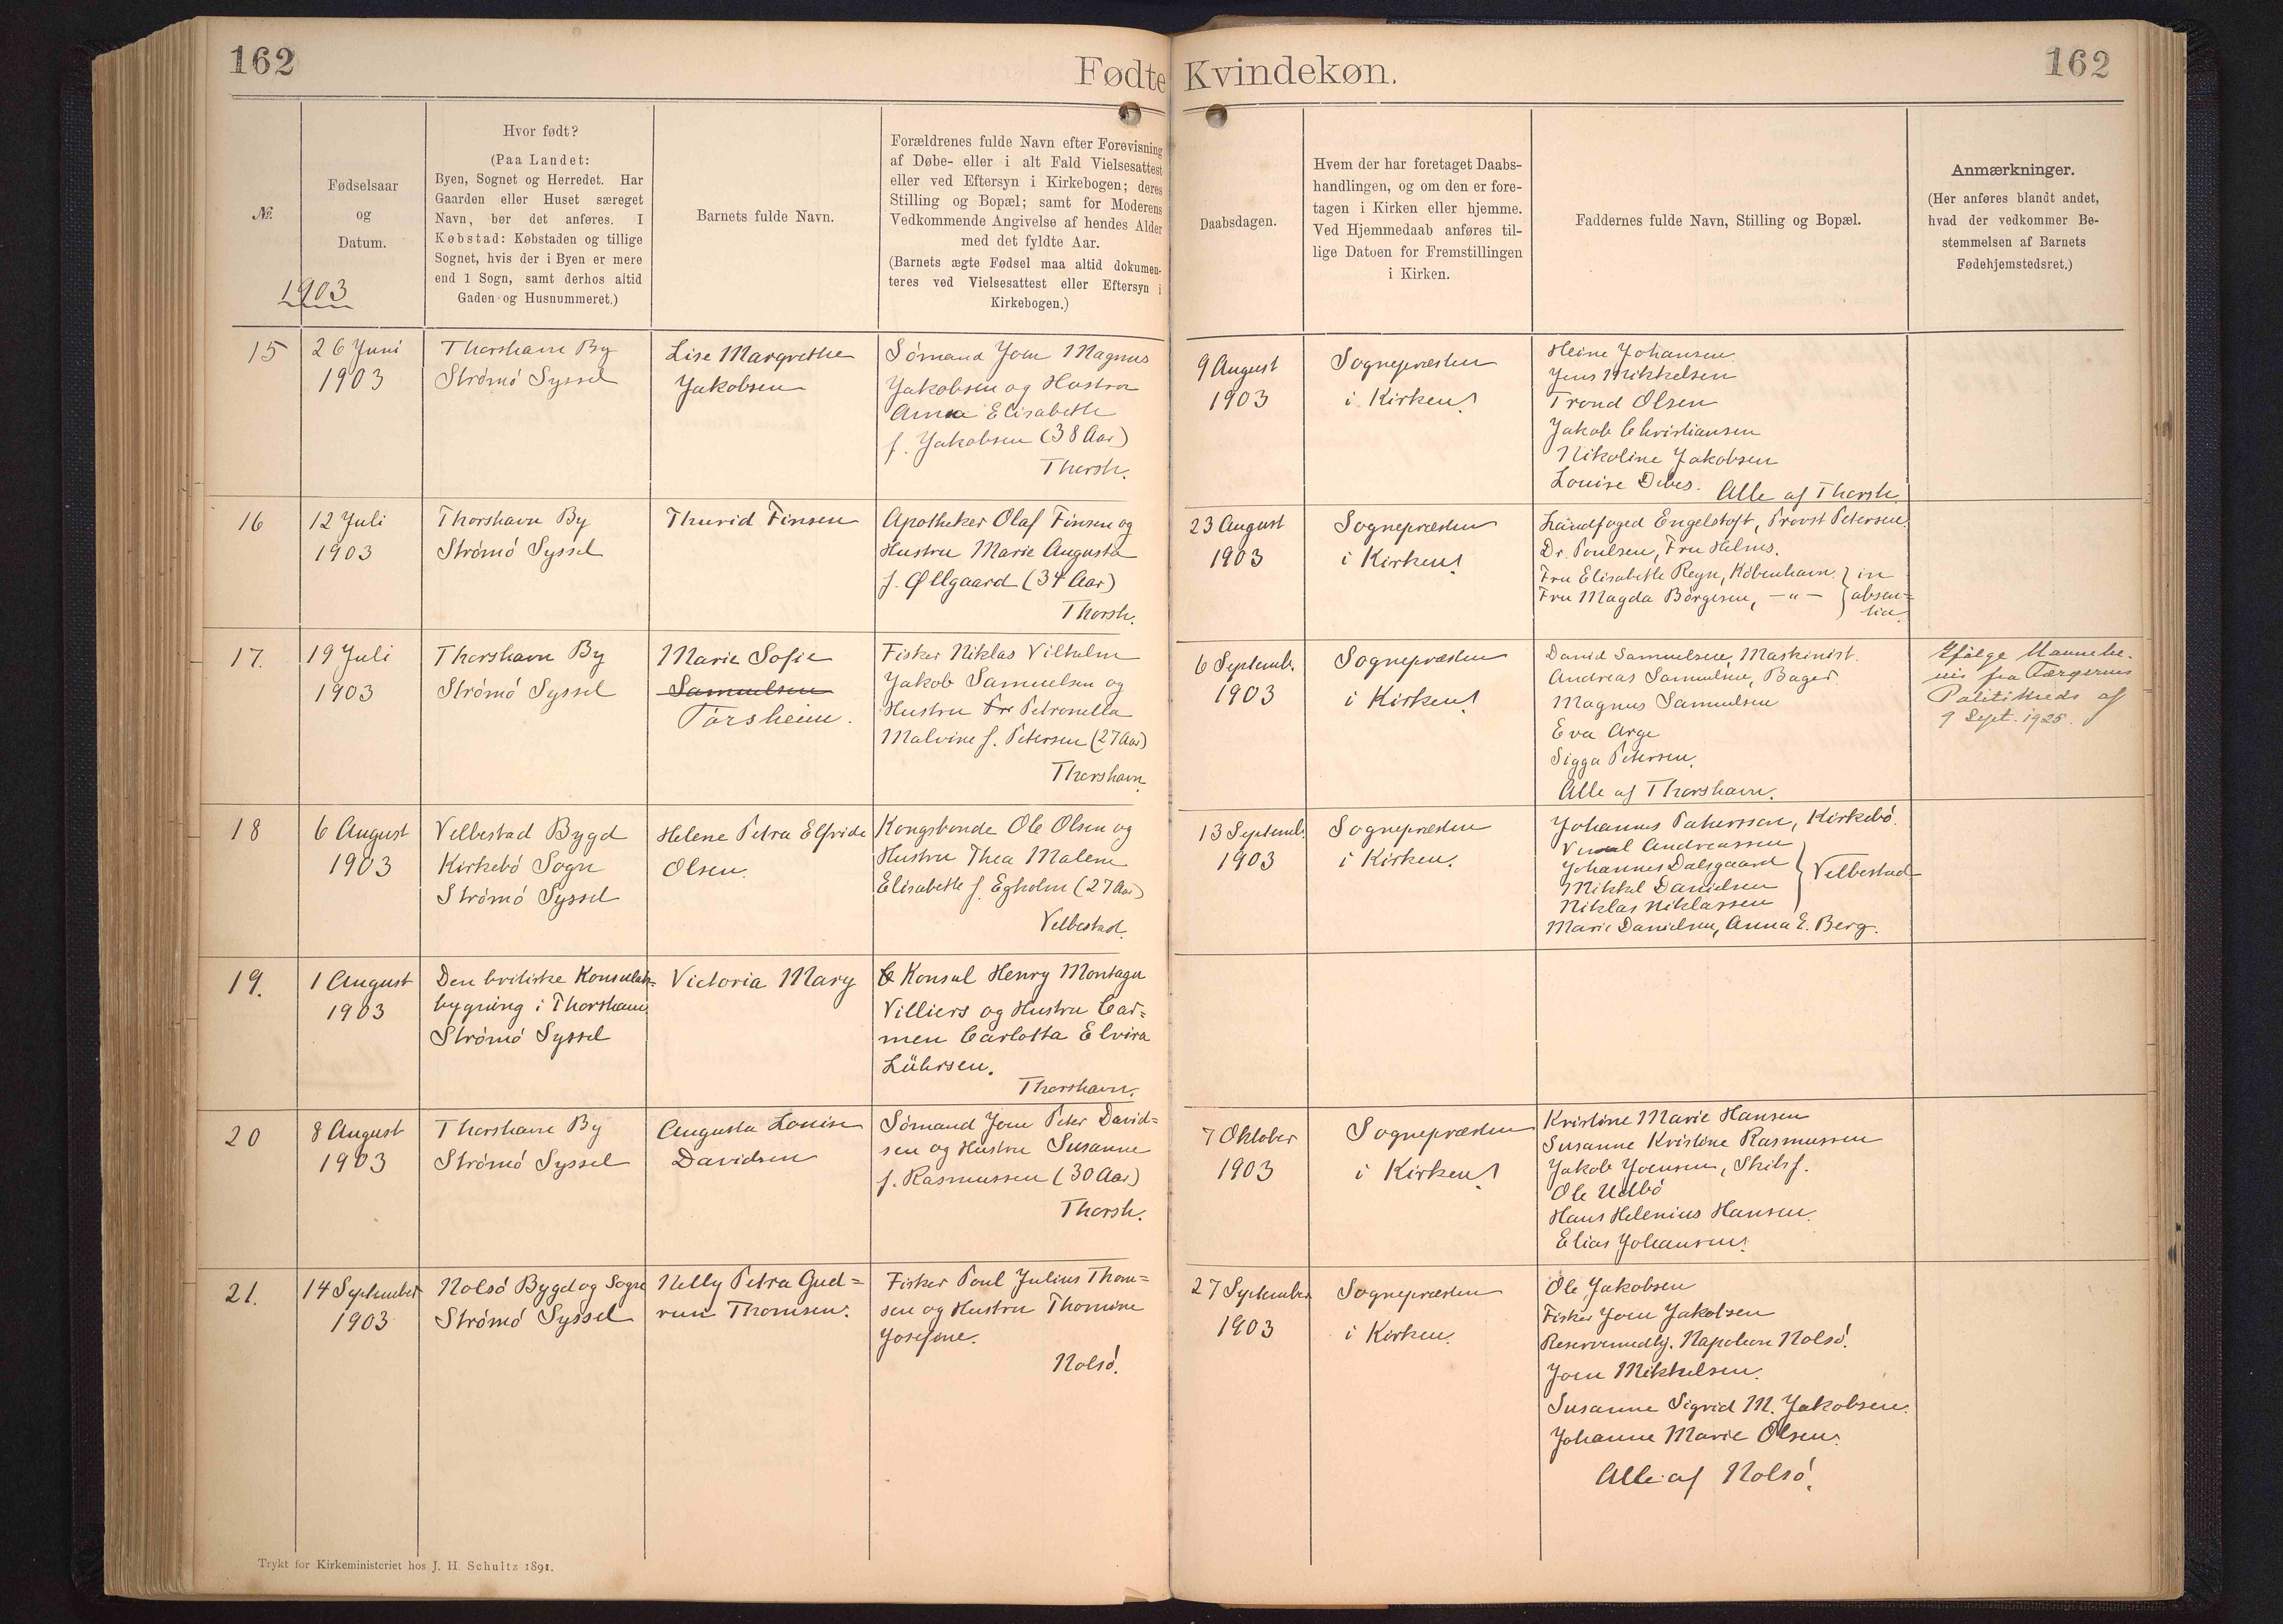 162
Fødte Kvindekøn.
162
№.
1903
Fødselsaar
og
Datum.
Hvor født?
(Paa Landet:
Byen, Sognet og Herredet. Har
Gaarden eller Huset særeget
Navn, bør det anføres. I
Købstad: Købstaden og tillige
Sognet, hvis der i Byen er mere
end 1 Sogn, samt derhos altid
Gaden og Husnummeret.)
Barnets fulde Navn.
Forældrenes fulde Navn efter Forevisning
af Døbe- eller i alt Fald Vielsesattest
eller ved Eftersyn i Kirkebogen; deres
Stilling og Bopæl; samt for Moderens
Vedkommende Angivelse af hendes Alder
med det fyldte Aar.
(Barnets ægte Fødsel maa altid dokumen-
teres ved Vielsesattest eller Eftersyn i
Kirkebogen.)
Daabsdagen.
Hvem der har foretaget Daabs-
handlingen, og om den er fore-
tagen i Kirken eller hjemme.
Ved Hjemmedaab anføres til-
lige Datoen for Fremstillingen
i Kirken.
Faddernes fulde Navn, Stilling og Bopæl.
Anmærkninger.
(Her anføres blandt andet,
hvad der vedkommer Be-
stemmelsen af Barnets
Fødehjemstedsret.)
15
26 Juni
1903
Thorshavn By
Strømö Syssel
Lise Margrethe
Jakobsen
Sömand Joen Magnus
Jakobsen og Hustru
Anna Elisabeth
f. Jakobsen (38 Aar)
Thorsh.
9 August
1903
Sognepræsten
i Kirken
Heine Johansen
Jens Mikkelsen
Trond Olsen
Jakob Christiansen
Nikoline Jakobsen
Louise Debes. Alle af Thorsh.
16
12 Juli
1903
Thorshavn By
Strömö Syssel
Thurid Finsen
Apotheker Olaf Finsen og
Hustru Marie Augusta
f. Øllgaard (34 Aar)
Thorsh.
23 August
1903
Sognepræsten
i Kirken
Landfoged Engelstoft, Provst Petersen
Dr. Poulsen, Fru Helms.
Fru Elisabeth Regn, Köbenhavn } in
Fru Magda Börgesen, —"— } absen=
tia
17.
19 Juli
1903
Thorshavn By
Strömö Syssel
Marie Sofie
Samuelsen
Tórsheim.
Fisker Niklas Vilhelm
Jakob Samuelsen og
Hustru Petronella
Malvine f. Petersen (27 Aar)
Thorshavn
6 Septemb.
1903
Sognepræsten
i Kirken
David Samuelsen, Maskinist.
Andreas Samuelsen, Bager.
Magnus Samuelsen
Eva Arge
Sigga Petersen.
Alle af Thorshavn.
Ifølge Navnebe-
vis fra Færøernes
Politikreds af
9 Sept. 1925.
18
6 August
1903
Velbestad Bygd
Kirkebö Sogn
Strömö Syssel
Helene Petra Elfride
Olsen.
Kongsbonde Ole Olsen og
Hustru Thea Malene
Elisabeth f. Egholm (27 Aar)
Velbestad.
13 Septemb.
1903
Sognepræsten
i Kirken.
Johannes Patursson, Kirkebö.
Andreassen
Johannes Dalsgaard
Mikkel Danielsen
Niklas Niklassen
} Velbestad
Marie Danielsen, Anna E. Berg.
19.
1 August
1903
Den britiske Konsulats=
bygning i Thorshavn
Strömö Syssel
Victoria Mary
Konsul Henry Montagu
Villiers og Hustru Car=
men Carlotta Elvira
Lührsen.
Thorshavn.
20
8 August
1903
Thorshavn By
Strömö Syssel
Augusta Louise
Davidsen
Sömand Joen Peter David=
sen og Hustru Susanne
f. Rasmussen (30 Aar)
Thorsh.
7 Oktober
1903
Sognepræsten
i Kirken
Kristine Marie Hansen
Susanne Kristine Rasmussen
Jakob Joensen, Skibsf.
Ole Udbö
Hans Helenius Hansen
Elias Johansen
21.
14 September
1903
Nolsö Bygd og Sogn
Strömö Syssel
Nelly Petra Gud=
run Thomsen.
Fisker Poul Julius Thom=
sen og Hustru Thomine
Josefine.
Nolsö.
27 September
1903
Sognepræsten
i Kirken.
Ole Jakobsen
Fisker Joen Jakobsen
Napoleon Nolsö.
Joen Mikkelsen.
Susanne Sigrid M. Jakobsen.
Johanne Marie Olsen.
Alle af Nolsö.
Trykt for Kirkeministeriet hos J. H. Schultz 1891.